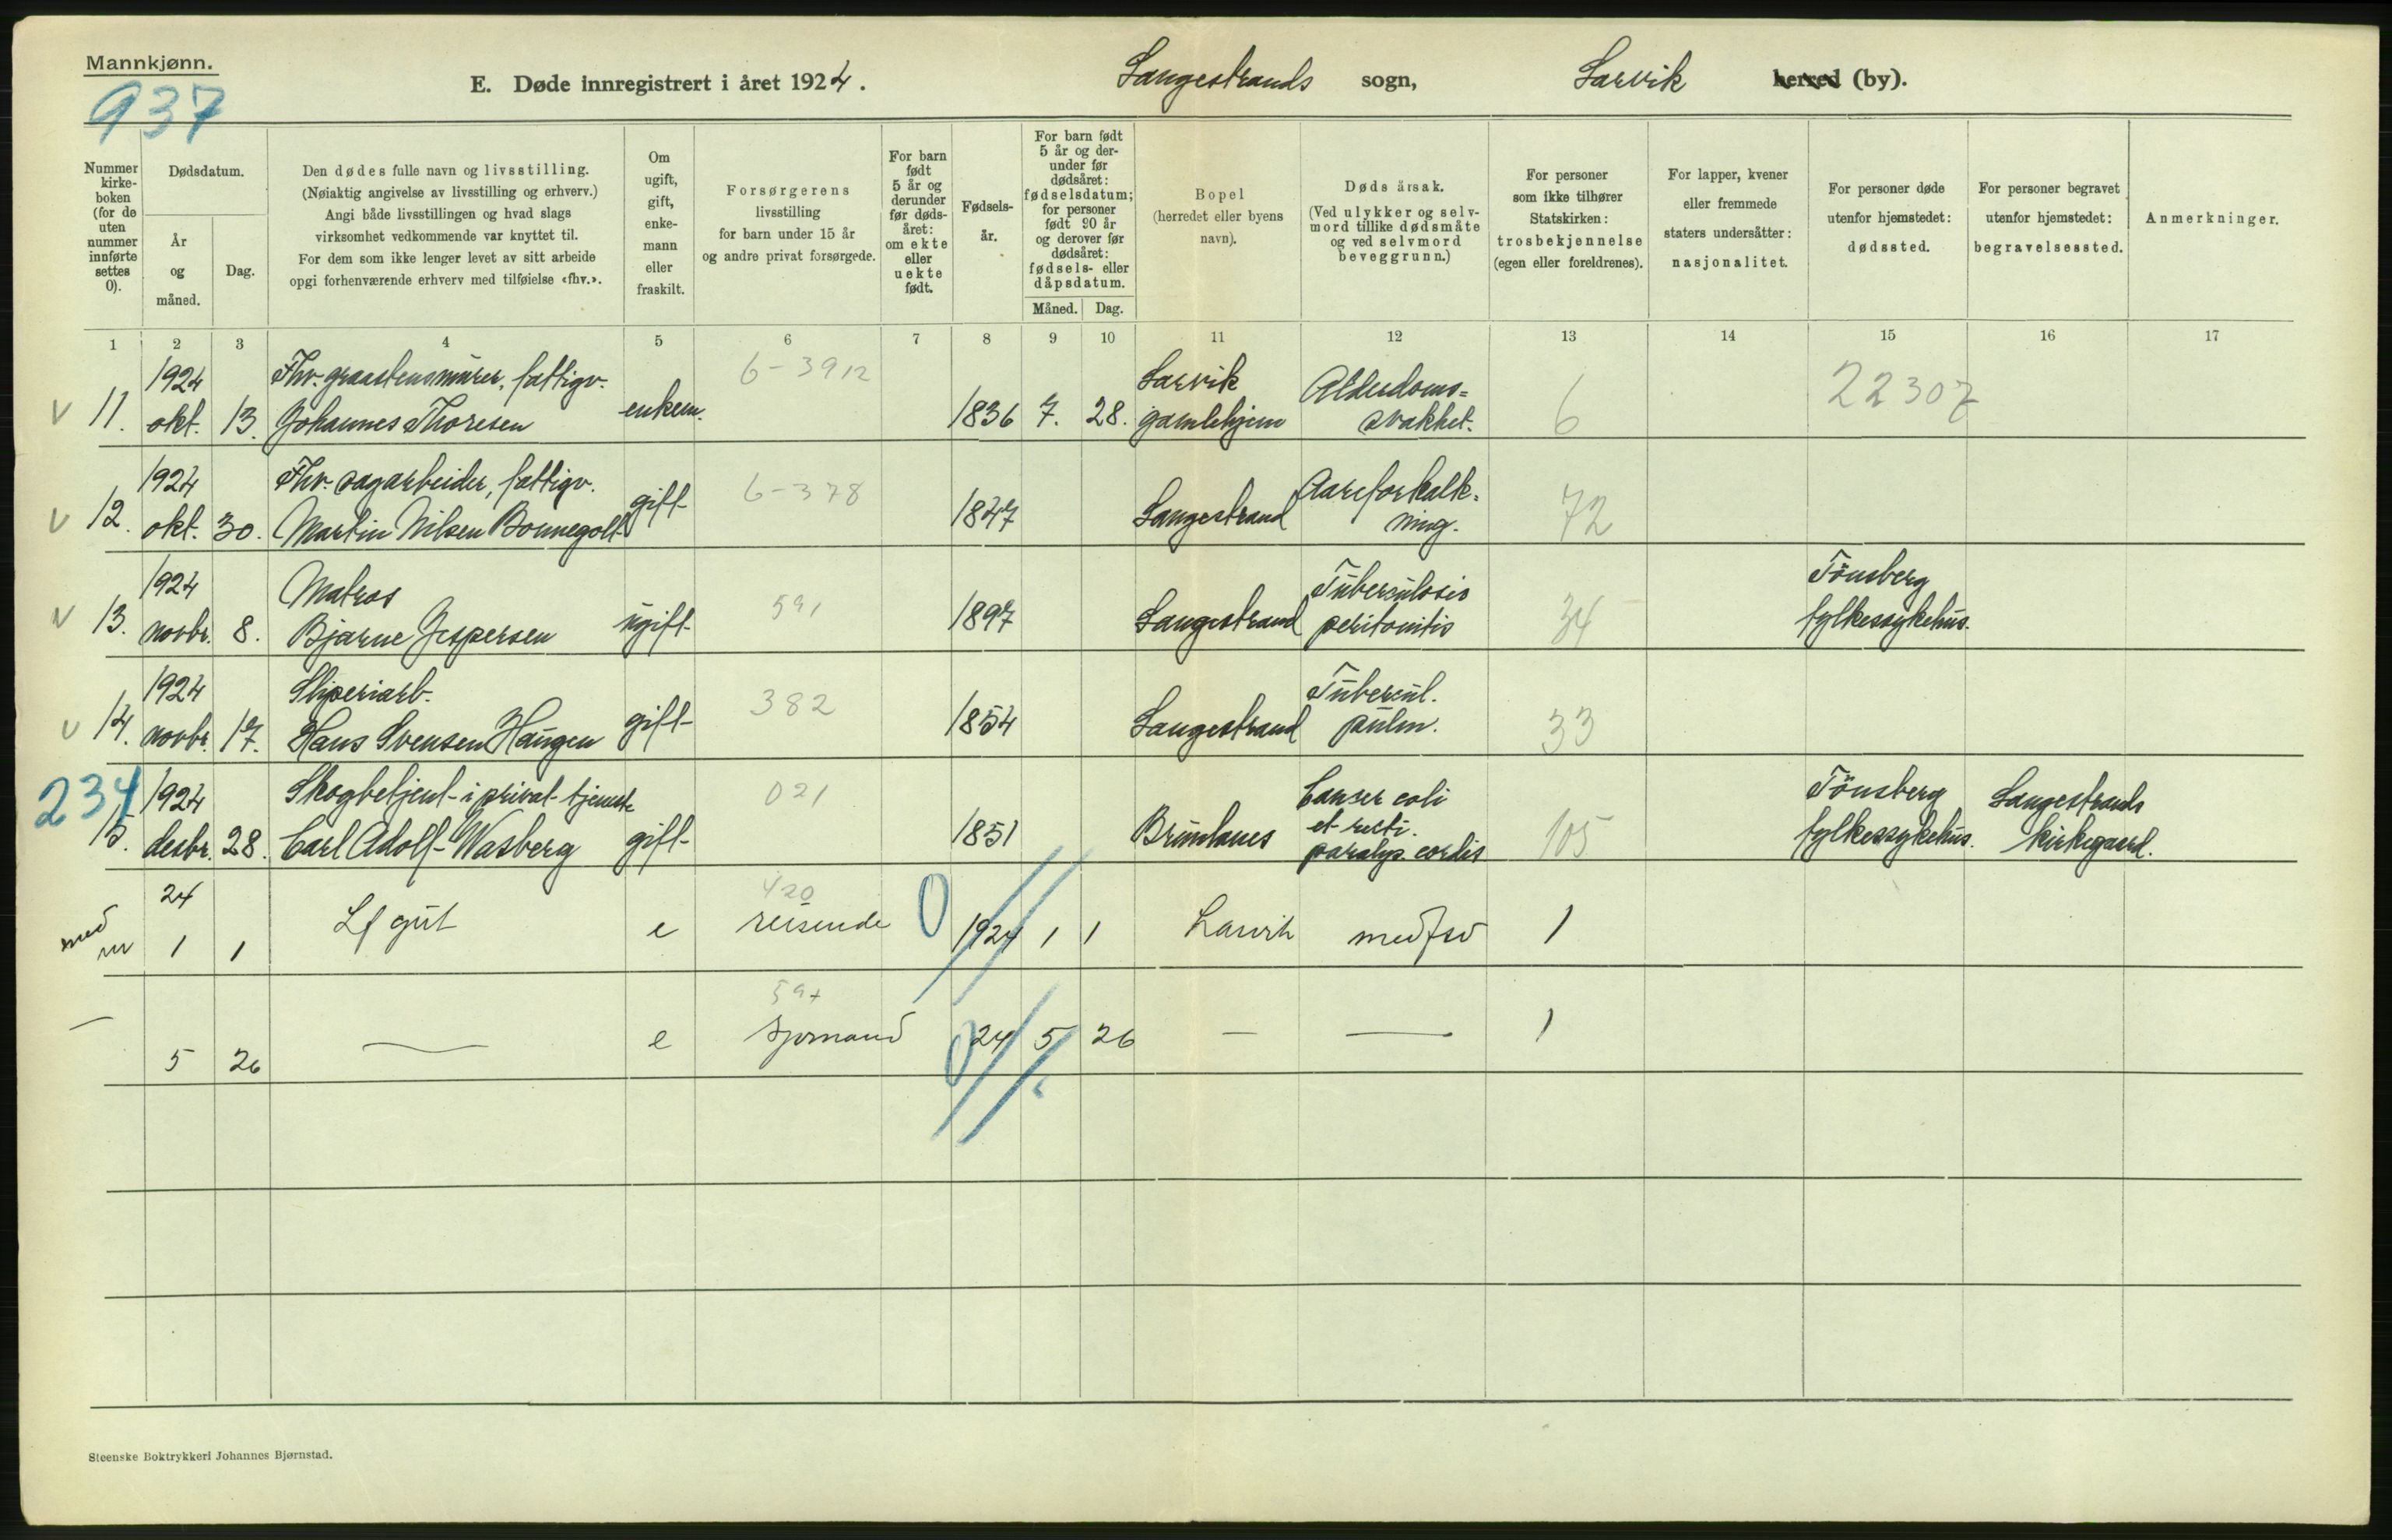 Mannkjønn.
937
E. Døde innregistrert i året 1924.
Langestrands sogn,
Larvik herred (by).
Nummer
kirke-
boken
(for de
uten
nummer
innførte
settes
0).
Dødsdatum.
År
og
måned.
Dag.
Den dødes fulle navn og livsstilling.
(Nøiaktig angivelse av livsstilling og erhverv.)
Angi både livsstillingen og hvad slags
virksomhet vedkommende var knyttet til.
For dem som ikke lenger levet av sitt arbeide
opgi forhenværende erhverv med tilføielse «fhv.».
Om
ugift,
gift,
enke-
mann
eller
fraskilt.
Forsørgerens
livsstilling
for barn under 15 år
og andre privat forsørgede.
For barn
født
5 år og
derunder
før døds-
året:
om ekte
eller
uekte
født.
Fødsels-
år.
For barn født
5 år og der-
under før
dødsåret:
fødselsdatum;
for personer
født 90 år
og derover før
dødsåret:
fødsels- eller
dåpsdatum.
Måned. Dag.
Bopel
(herredet eller byens
navn).
Dødsårsak.
(Ved ulykker og selv-
mord tillike dødsmåte
og ved selvmord
beveggrunn.)
For personer
som ikke tilhører
Statskirken:
trosbekjennelse
(egen eller foreldrenes).
For lapper, kvener
eller fremmede
staters undersåtter:
nasjonalitet.
For personer døde
utenfor hjemstedet:
dødssted.
For personer begravet
utenfor hjemstedet:
begravelsessted.
Anmerkninger.
1 2 3 4 5 6 7 8 9 10 11 12 13 14 15 16 17
1924 Fhv. graastensmurer, fattigv. 6-3912 Larvik Alderdoms= 22307
v 11. okt. 13. Johannes Thoresen enkem. 1836 7. 28. gamlehjem svakhet. 6
1924 Fhv. sagarbeider, fattigv. 6-378 Aareforkalk=
v 12. okt. 30. Martin Nilsen Bonnegolt gift 1847 Langestrand ning. 72
1924 Matros 591 Tuberculosis Tönsberg
v 13. novbr. 8. Bjarne Jespersen ugift 1897 Langestrand peritonitis 34 fylkessykehus.
1924 Sliperiarb. 382 Tubercul.
v 14. novbr. 17. Hans Svensen Haugen gift 1854 Langestrand pulm. 33
234 1924 Skogbetjent i privat tjeneste 021 Canser coli Tönsberg Langestrands
et recti.
15. desbr. 28. Carl Adolf Wasberg gift 1851 Brunlanes paralys. cordis 105 fylkessykehus. kirkegaard.
24 420
med Lf gut e reisende 0 1924 1 1 Larvik medfsv 1
1 1
597
— — e sjømand 0 24 5 26 — — 1
5 26
Steenske Boktrykkeri Johannes Bjørnstad.